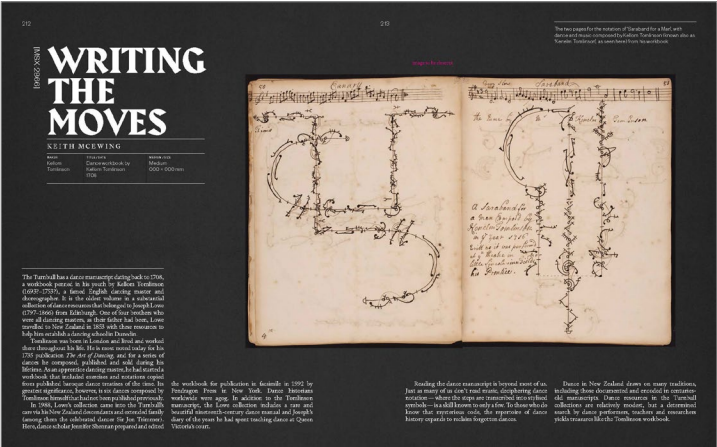 212
213
The two pages for the notation of 'Saraband for a Man', with
dance and music composed by Kellom Tomlinson (known also as
'Kenelm Tomlinson', as seen here) from his workbook.
[MSX-2966]
WRITING
THE
MOVES
KEITH MCEWING
Kellom
Tomlinson
Dance workbook by
Kellom Tomlinson
1708
Medium
000 × 000mm
The Turnbull has a dance manuscript dating back to 1708,
a workbook penned in his youth by Kellom Tomlinson
(1693?–1753?), a famed English dancing master and
choreographer. It is the oldest volume in a substantial
collection of dance resources that belonged to Joseph Lowe
(1797–1866) from Edinburgh. One of four brothers who
were all dancing masters, as their father had been, Lowe
travelled to New Zealand in 1853 with these resources to
help him establish a dancing school in Dunedin.
Tomlinson was born in London and lived and worked
there throughout his life. He is most noted today for his
1735 publication The Art of Dancing, and for a series of
dances he composed, published and sold during his
lifetime. As an apprentice dancing master, he had started a
workbook that included exercises and notations copied
from published baroque dance treatises of the time. Its
greatest significance, however, is six dances composed by
Tomlinson himself that had not been published previously.
In 1988, Lowe's collection came into the Turnbull's
care via his New Zealand descendants and extended family
(among them the celebrated dancer Sir Jon Trimmer).
Here, dance scholar Jennifer Shennan prepared and edited
the workbook for publication in facsimile in 1992 by
Pendragon Press in New York. Dance historians
worldwide were agog. In addition to the Tomlinson
manuscript, the Lowe collection includes a rare and
beautiful nineteenth-century dance manual and Joseph's
diary of the years he had spent teaching dance at Queen
Victoria's court.
Reading the dance manuscript is beyond most of us.
Just as many of us don't read music, deciphering dance
notation — where the steps are transcribed into stylised
symbols — is a skill known to only a few. To those who do
know that mysterious code, the repertoire of dance
history expands to reclaim forgotten dances.
Dance in New Zealand draws on many traditions,
including those documented and encoded in centuries-
old manuscripts. Dance resources in the Turnbull
collections are relatively modest, but a determined
search by dance performers, teachers and researchers
yields treasures like the Tomlinson workbook.
Saraband
A Saraband for
a Man Compos'd by